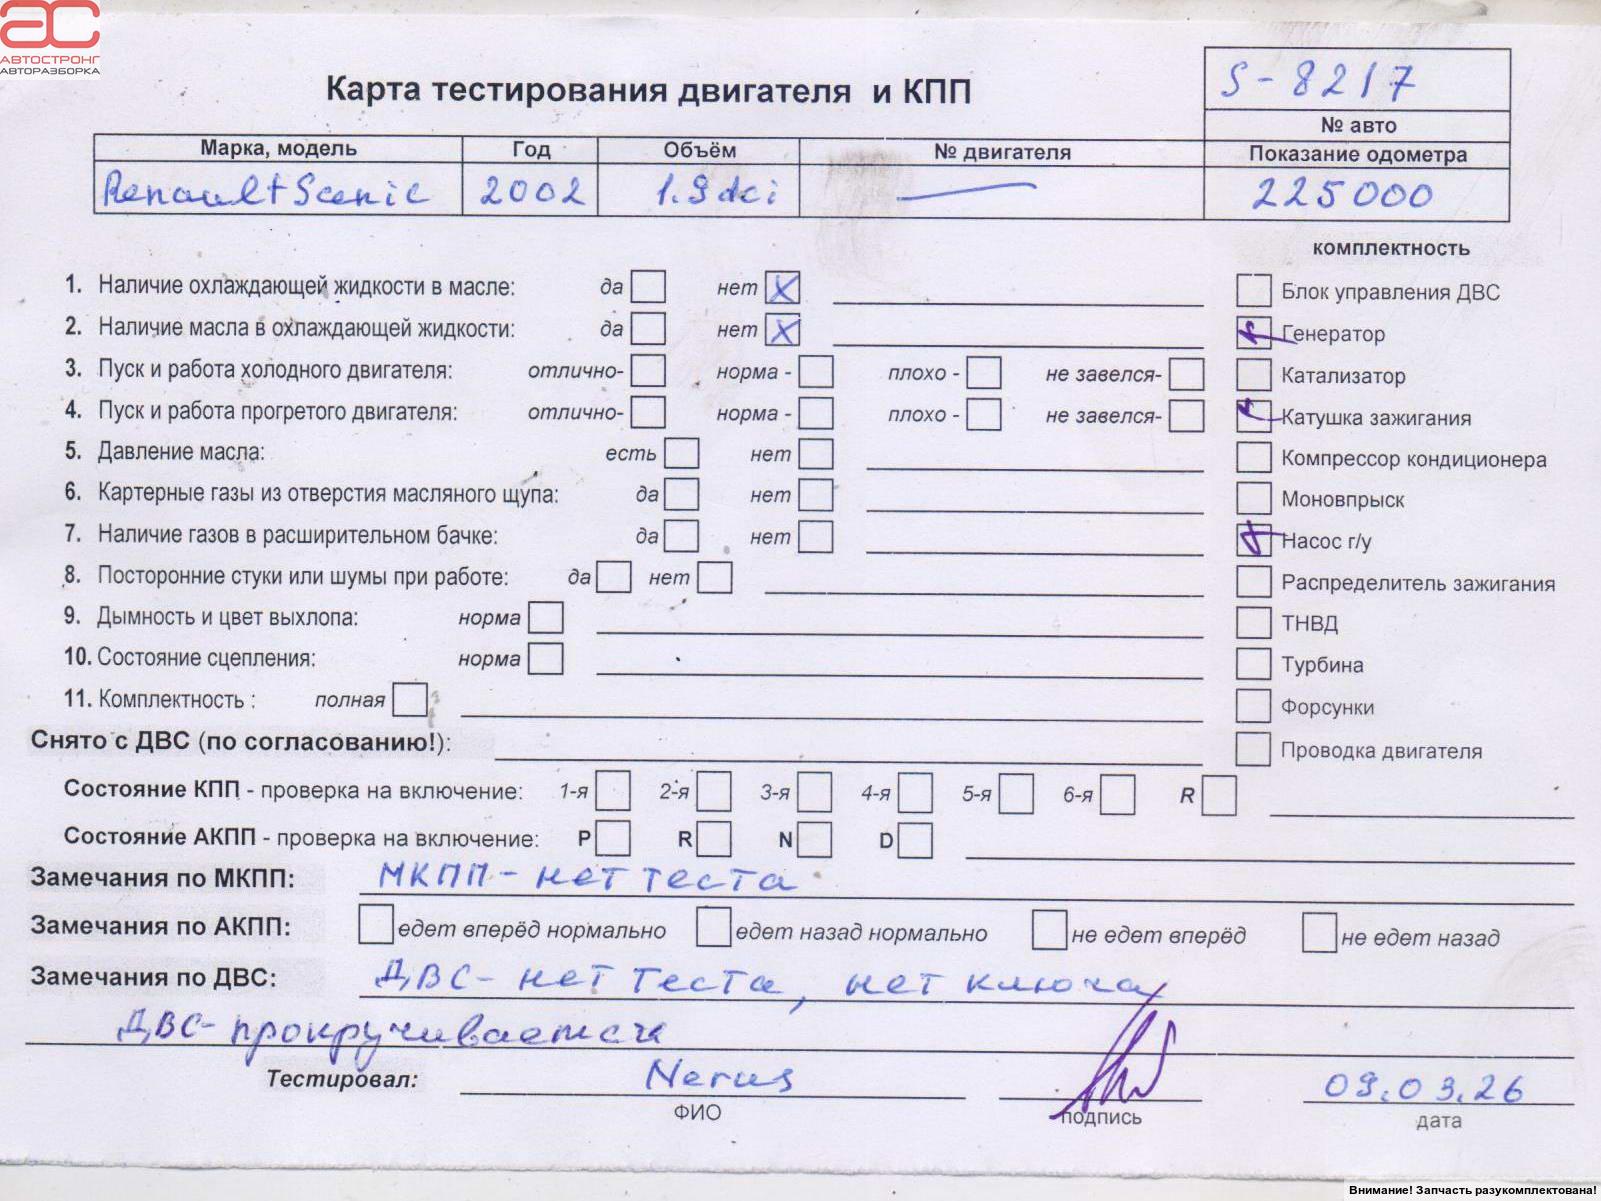 АС
АВТОСТРОНГ
АВТОРАЗБОРКА
Карта тестирования двигателя и КПП
S-8217
№ авто
Марка, модель Год Объём № двигателя Показание одометра
Renault Scenic 2002 1.9 dci — 225000
комплектность
1. Наличие охлаждающей жидкости в масле: да нет X
Блок управления ДВС
2. Наличие масла в охлаждающей жидкости: да нет X
Генератор
3. Пуск и работа холодного двигателя: отлично- норма - плохо - не завелся-
Катализатор
4. Пуск и работа прогретого двигателя: отлично- норма - плохо - не завелся-
Катушка зажигания
5. Давление масла: есть нет
Компрессор кондиционера
6. Картерные газы из отверстия масляного щупа: да нет
Моновпрыск
7. Наличие газов в расширительном бачке: да нет
Насос г/у
8. Посторонние стуки или шумы при работе: да нет
Распределитель зажигания
9. Дымность и цвет выхлопа: норма
ТНВД
10. Состояние сцепления: норма
Турбина
11. Комплектность : полная
Форсунки
Снято с ДВС (по согласованию!):
Проводка двигателя
Состояние КПП - проверка на включение: 1-я 2-я 3-я 4-я 5-я 6-я R
Состояние АКПП - проверка на включение: P R N D
Замечания по МКПП: МКПП - нет теста
Замечания по АКПП: едет вперёд нормально едет назад нормально не едет вперёд не едет назад
Замечания по ДВС: ДВС - нет теста, нет ключа
ДВС - прокручивается
Тестировал: 09.03.26
ФИО подпись дата
Внимание! Запчасть разукомплектована!